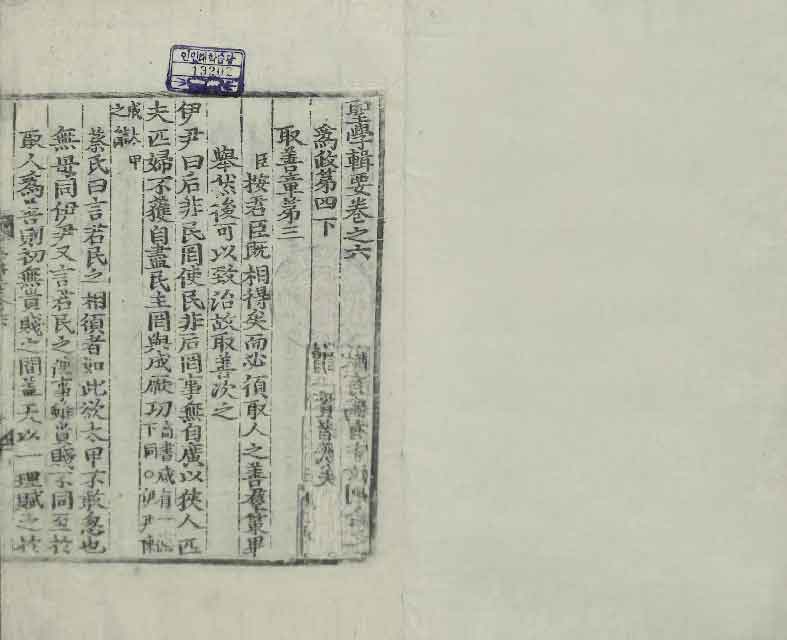 인민대학습당
13202
聖學輯要卷之六
爲政第四下
取善章第三
臣按君臣旣相得矣而必須取人之善羣策畢
擧然後可以致治故取善次之
伊尹曰后非民罔使民非后罔事無自廣以狹人匹
夫匹婦不獲自盡民主罔與成厥功
下同○伊尹陳
戒太甲
之辭
蔡氏曰言君民之相須者如此欲太甲不敢忽也
無毋同伊尹又言君民之使事雖貴賤不同至於
取人爲善則初無貴賤之間盖天以一理賦之於